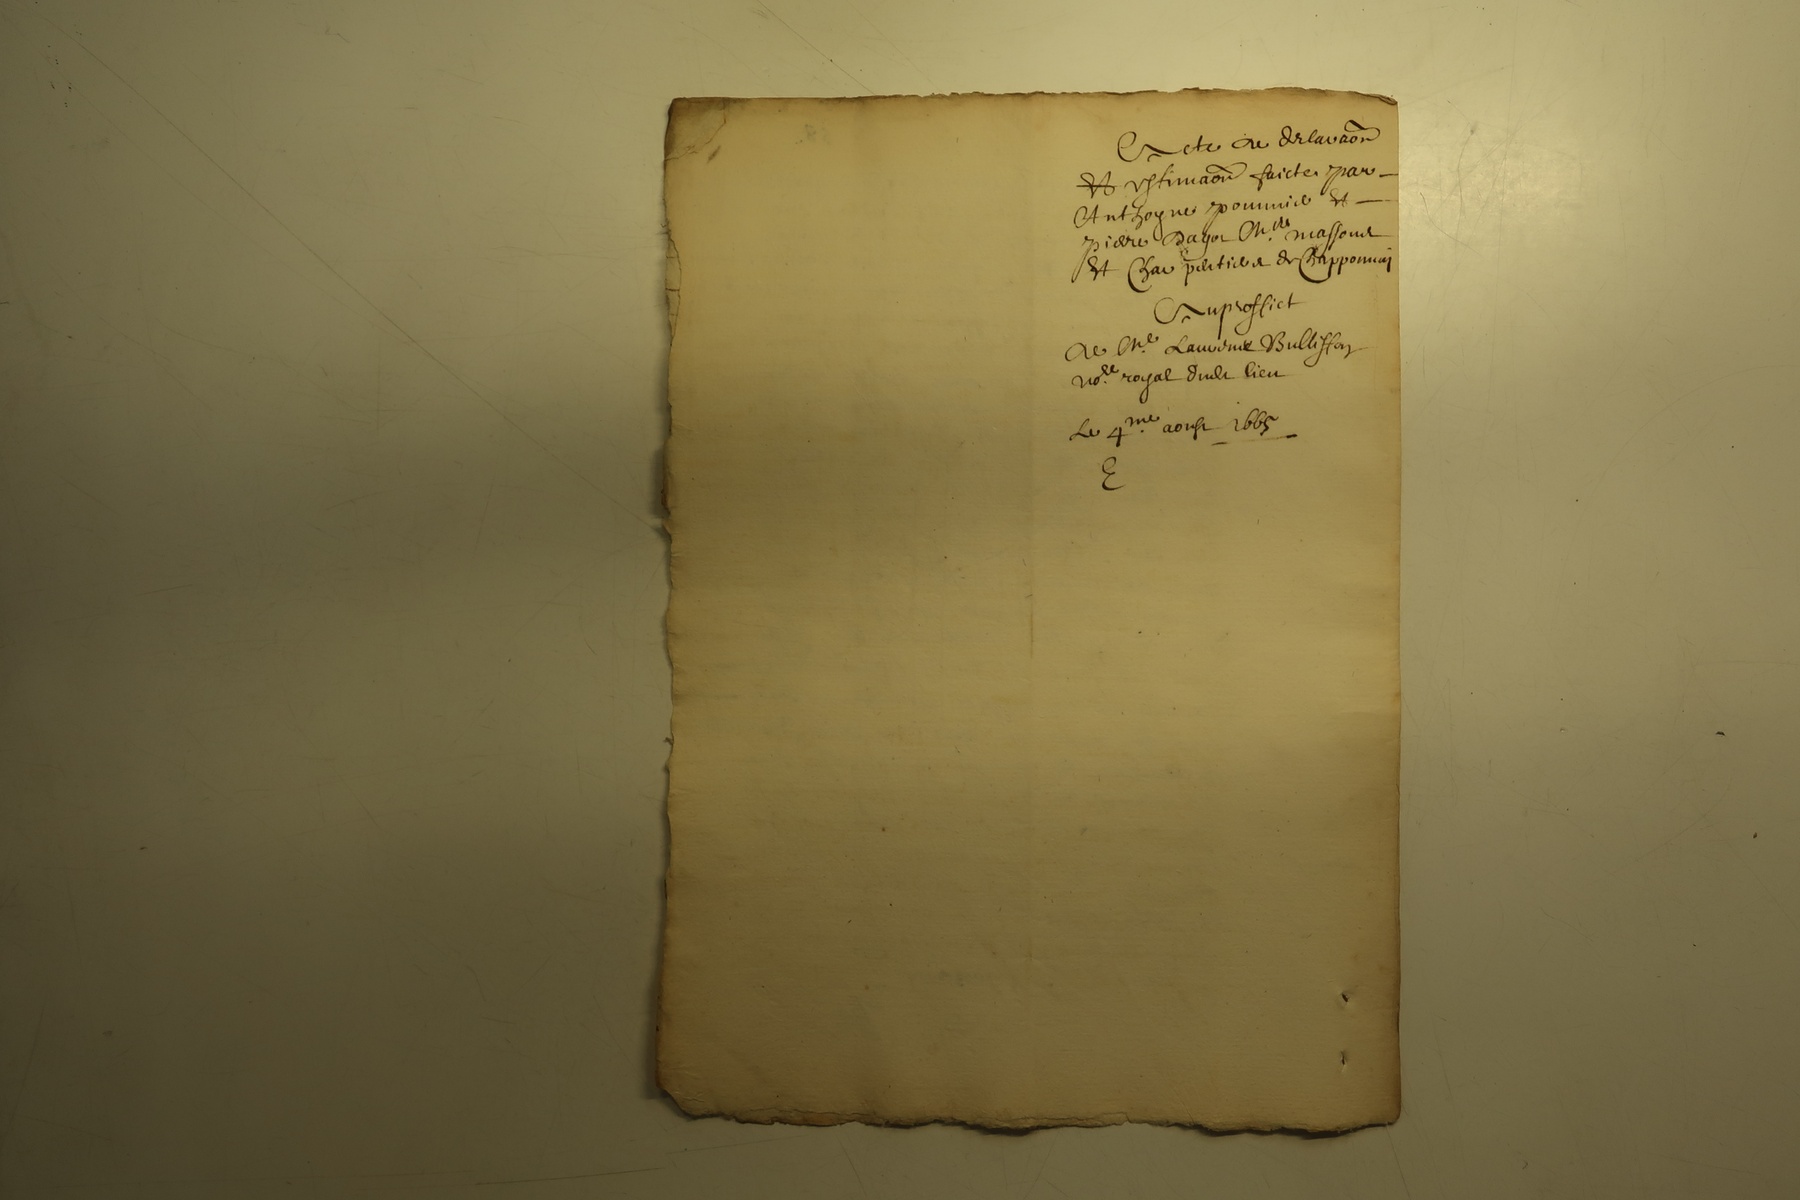 Acte de declaraōn
et estimaōn faicte par
Anthoyne pommier et
pierre Dayor Mes massons
et Charpentiers de Chapponnay
Auproffict
de Me Laurens Bullisson
nore royal dudt lieu
Le 4me aoust 1665